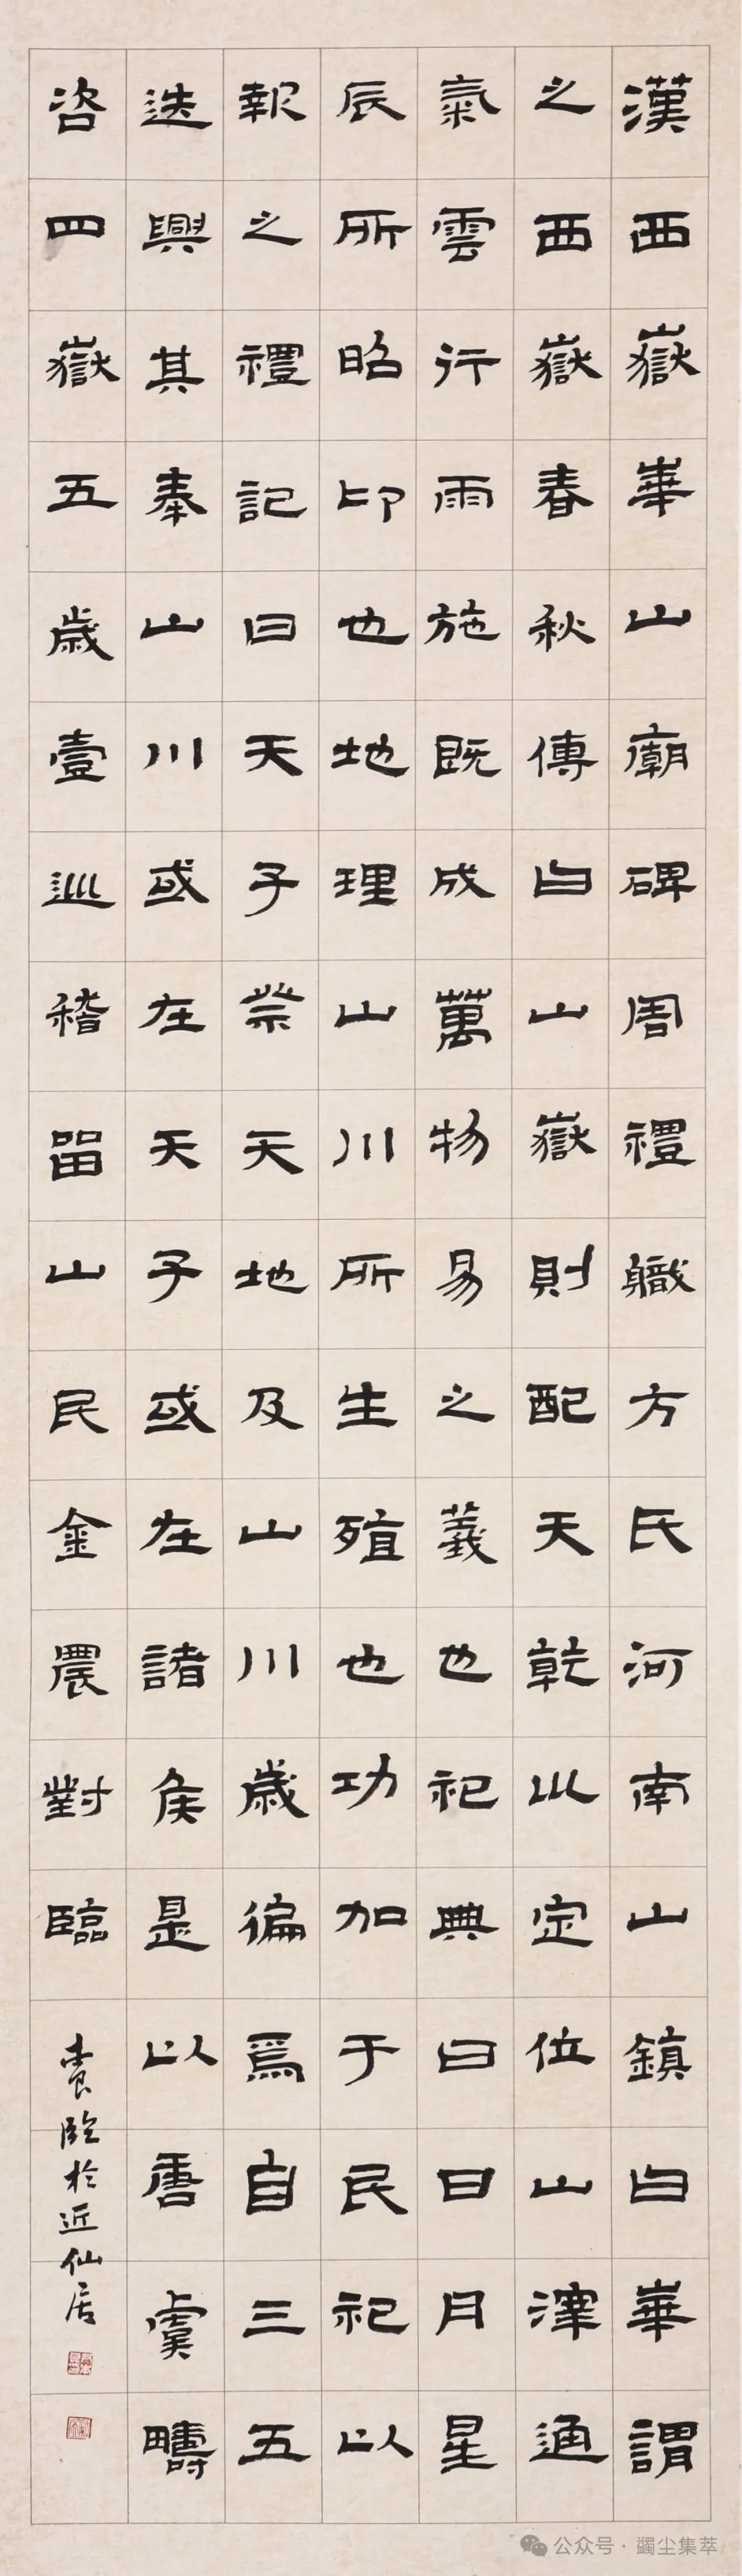 漢西嶽華山廟碑周禮軄方氏河南山鎮曰華謂
之西嶽春秋傳曰山嶽則配天乾以定位山澤通
氣雲行雨施既成萬物易之義也祀典曰日月星
辰所昭卬也地理山川所生殖也功加于民祀以
報之禮記曰天子祭天地及山川歲徧焉自三五
迭興其奉山川或在天子或在諸侯是以唐虞疇
咨四嶽五歲壹巡稽留山民金農對臨
臨於近仙居
公众号·蠲尘集萃